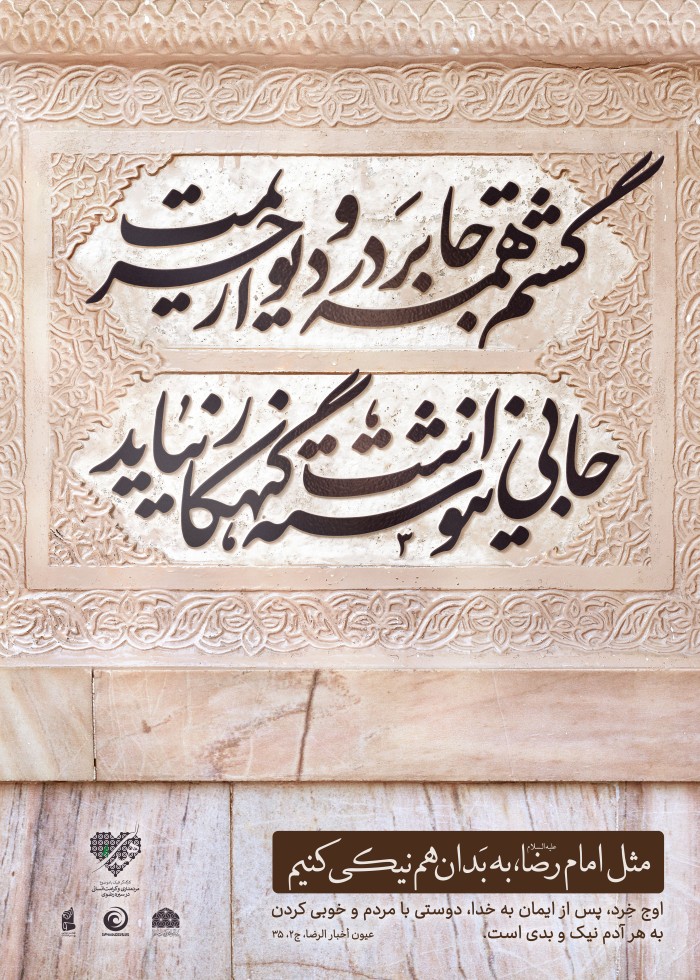 گشتم همه جا بر در و دیوار حریمت
جایی ننوشته است گنهکار نیاید
۳
مثل امام رضا علیه‌السلام، به بَدان هم نیکی کنیم
اوج خِرد، پس از ایمان به خدا، دوستی با مردم و خوبی کردن
به هر آدم نیک و بدی است.
عیون أخبار الرضا، ج۲، ۳۵